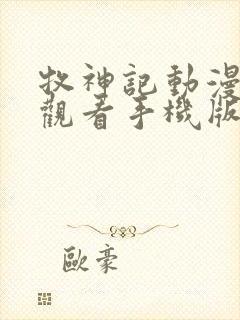 牧神記動漫
觀看手機版
歐豪